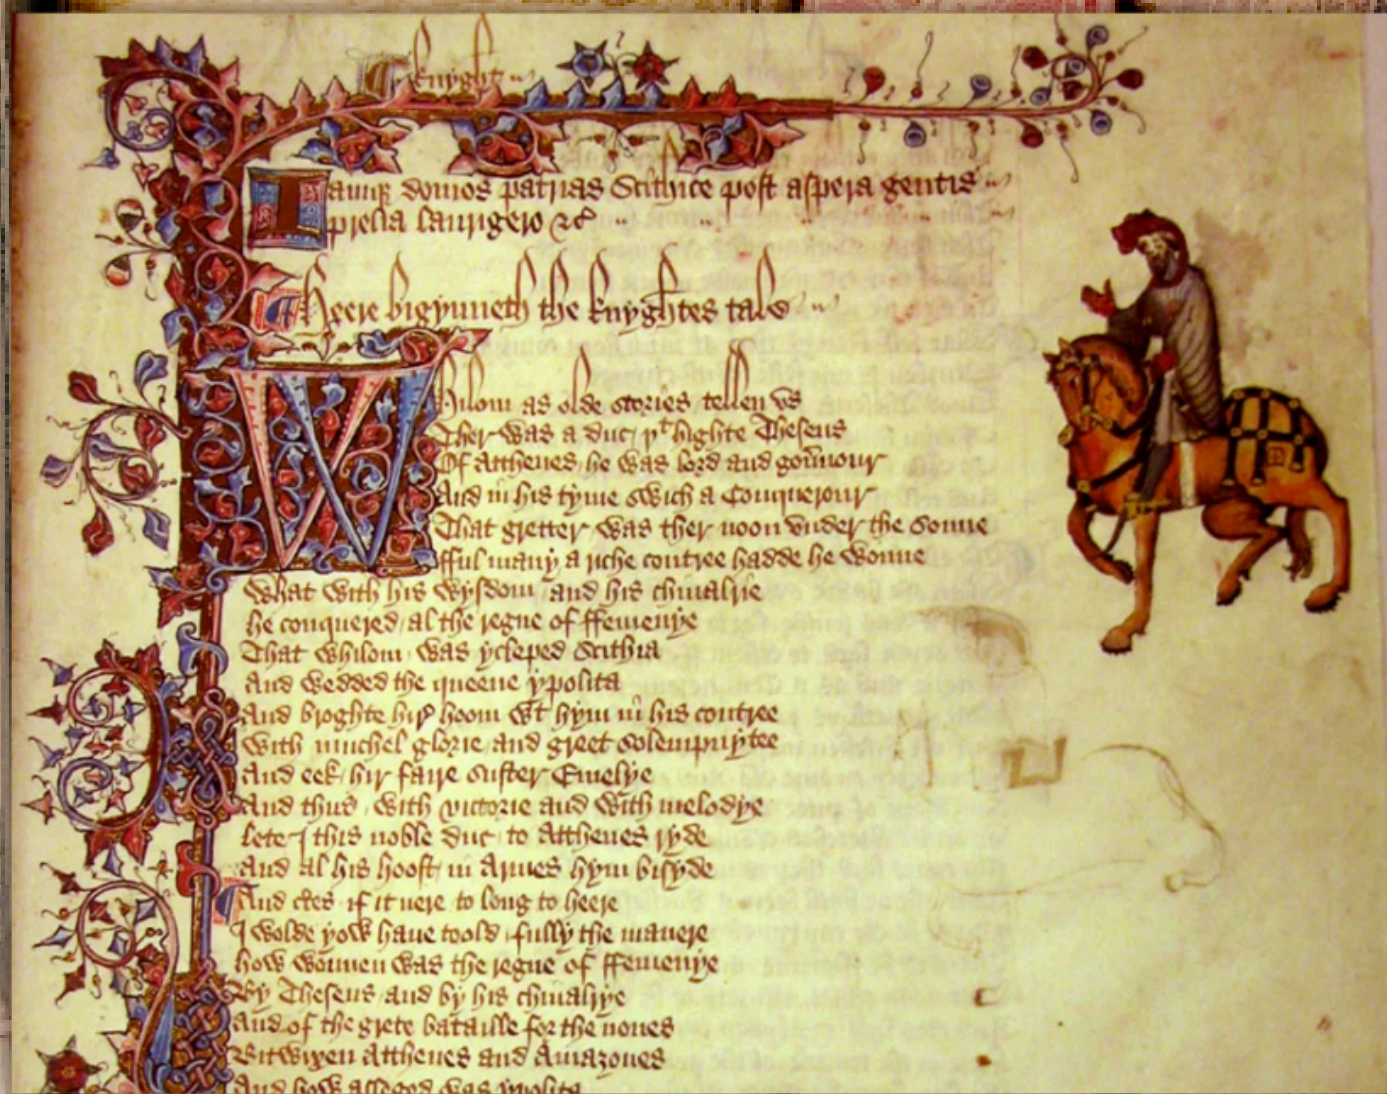 Knyght
Iamq; domos patrias Scithice post aspera gentis
prelia laurigero &c
Heere bigynneth the knyghtes tale
Whilom as olde stories tellen vs
Ther was a duc þt highte Theseus
Of Atthenes he was lord and gouernour
And in his tyme swich a Conquerour
That gretter was ther noon vnder the sonne
fful many a riche contree hadde he wonne
What with his wysdom and his chiualrie
he conquered al the regne of ffemenye
That whilom was ycleped Scithia
And wedded the queene ypolita
And broghte hir hoom wt hym in his contree
With muchel glorie and greet solempnytee
And eek hir faire suster Emelye
And thus with victorie and with melodye
lete I this noble duc to Atthenes ryde
And al his hoost in Armes hym bisyde
And certes if it nere to long to heere
I wolde yow haue toold fully the manere
how wonnen was the regne of ffemenye
By Theseus and by his chiualrye
And of the grete bataille for the nones
Bitwixen Atthenes and Amazones
And how asseged was ypolita